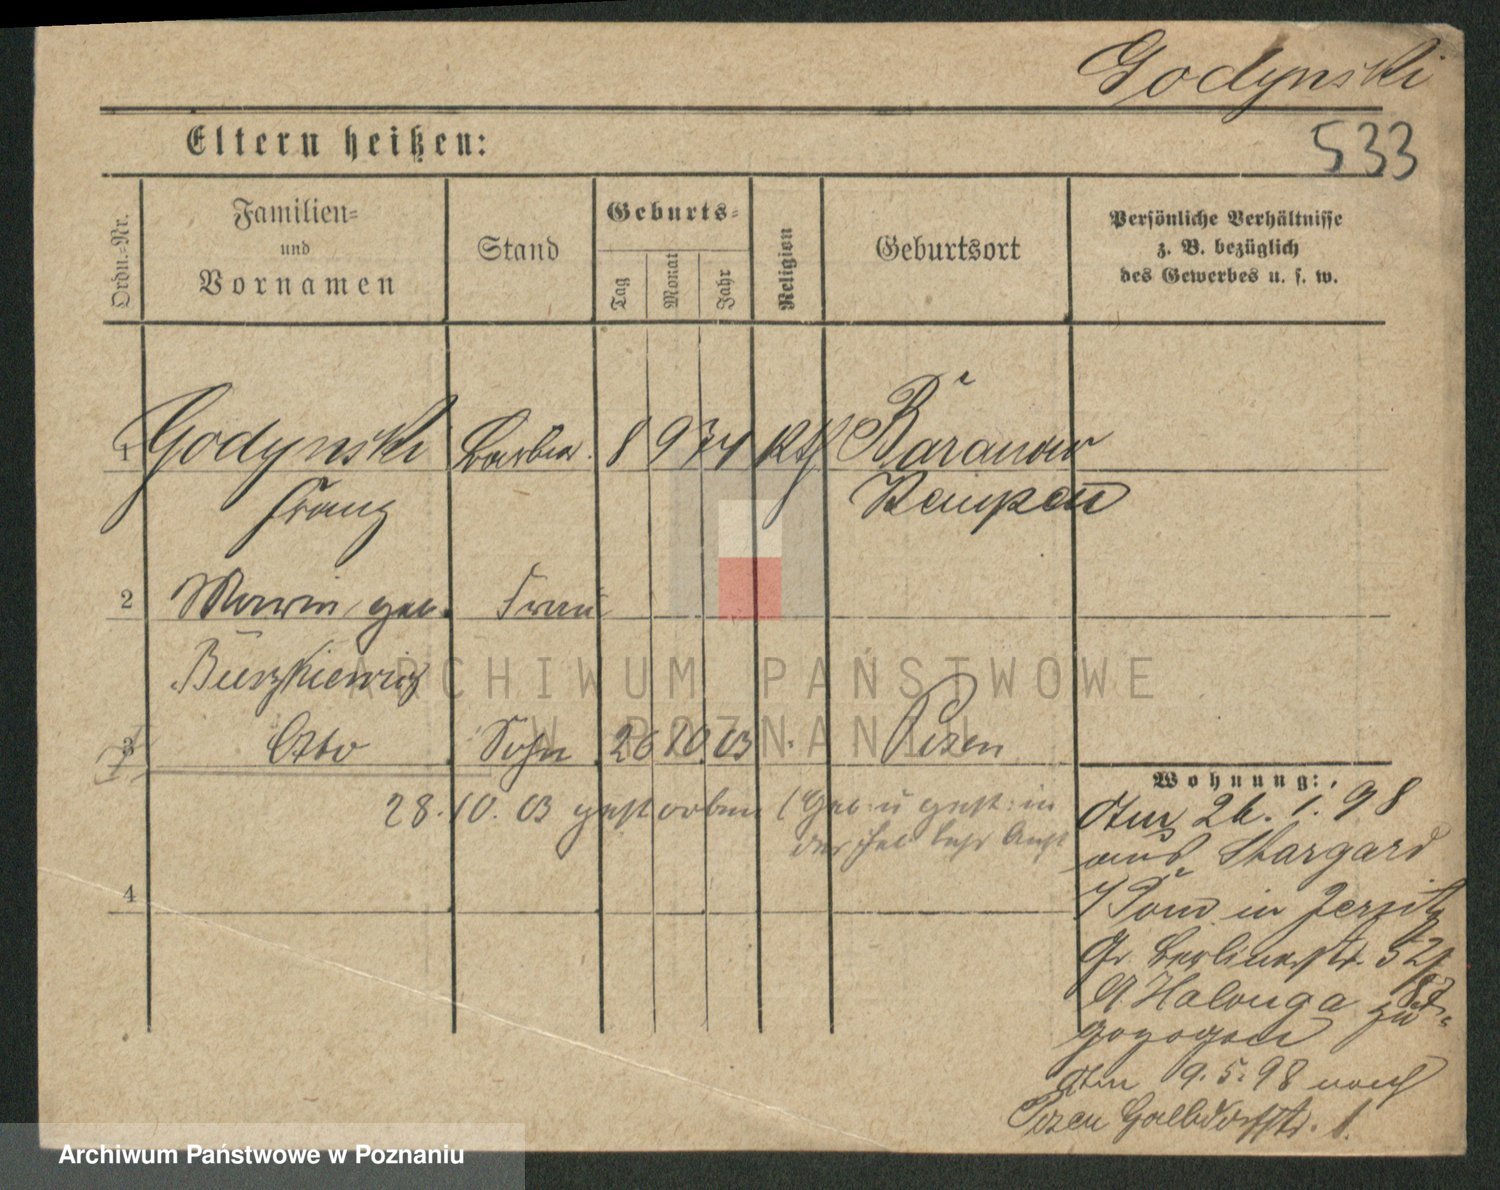 Godynski
533
Eltern heißen:
Ordn.-Nr.
Familien-
und
Vornamen
Stand
Geburts-
Tag
Monat
Jahr
Religion
Geburtsort
Persönliche Verhältnisse
z. B. bezüglich
des Gewerbes u. s. w.
1 Godynski Barbier. 8 9 74 Kth Baranow
Franz Kempen
2 Maria geb. Frau
Buszkiewicz
3 Otto Sohn 26 10. 03. Posen
28. 10. 03 gestorben (Geb. u gest. in
der Heb
4
Wohnung:
Am 26. 1. 98
aus Stargard
i/Pom in Jersitz
Gr. Berlinerstr. 52
zu-
gezogen
Am 9. 5. 98 nach
Posen 1.
ARCHIWUM PAŃSTWOWE
W POZNANIU
Archiwum Państwowe w Poznaniu